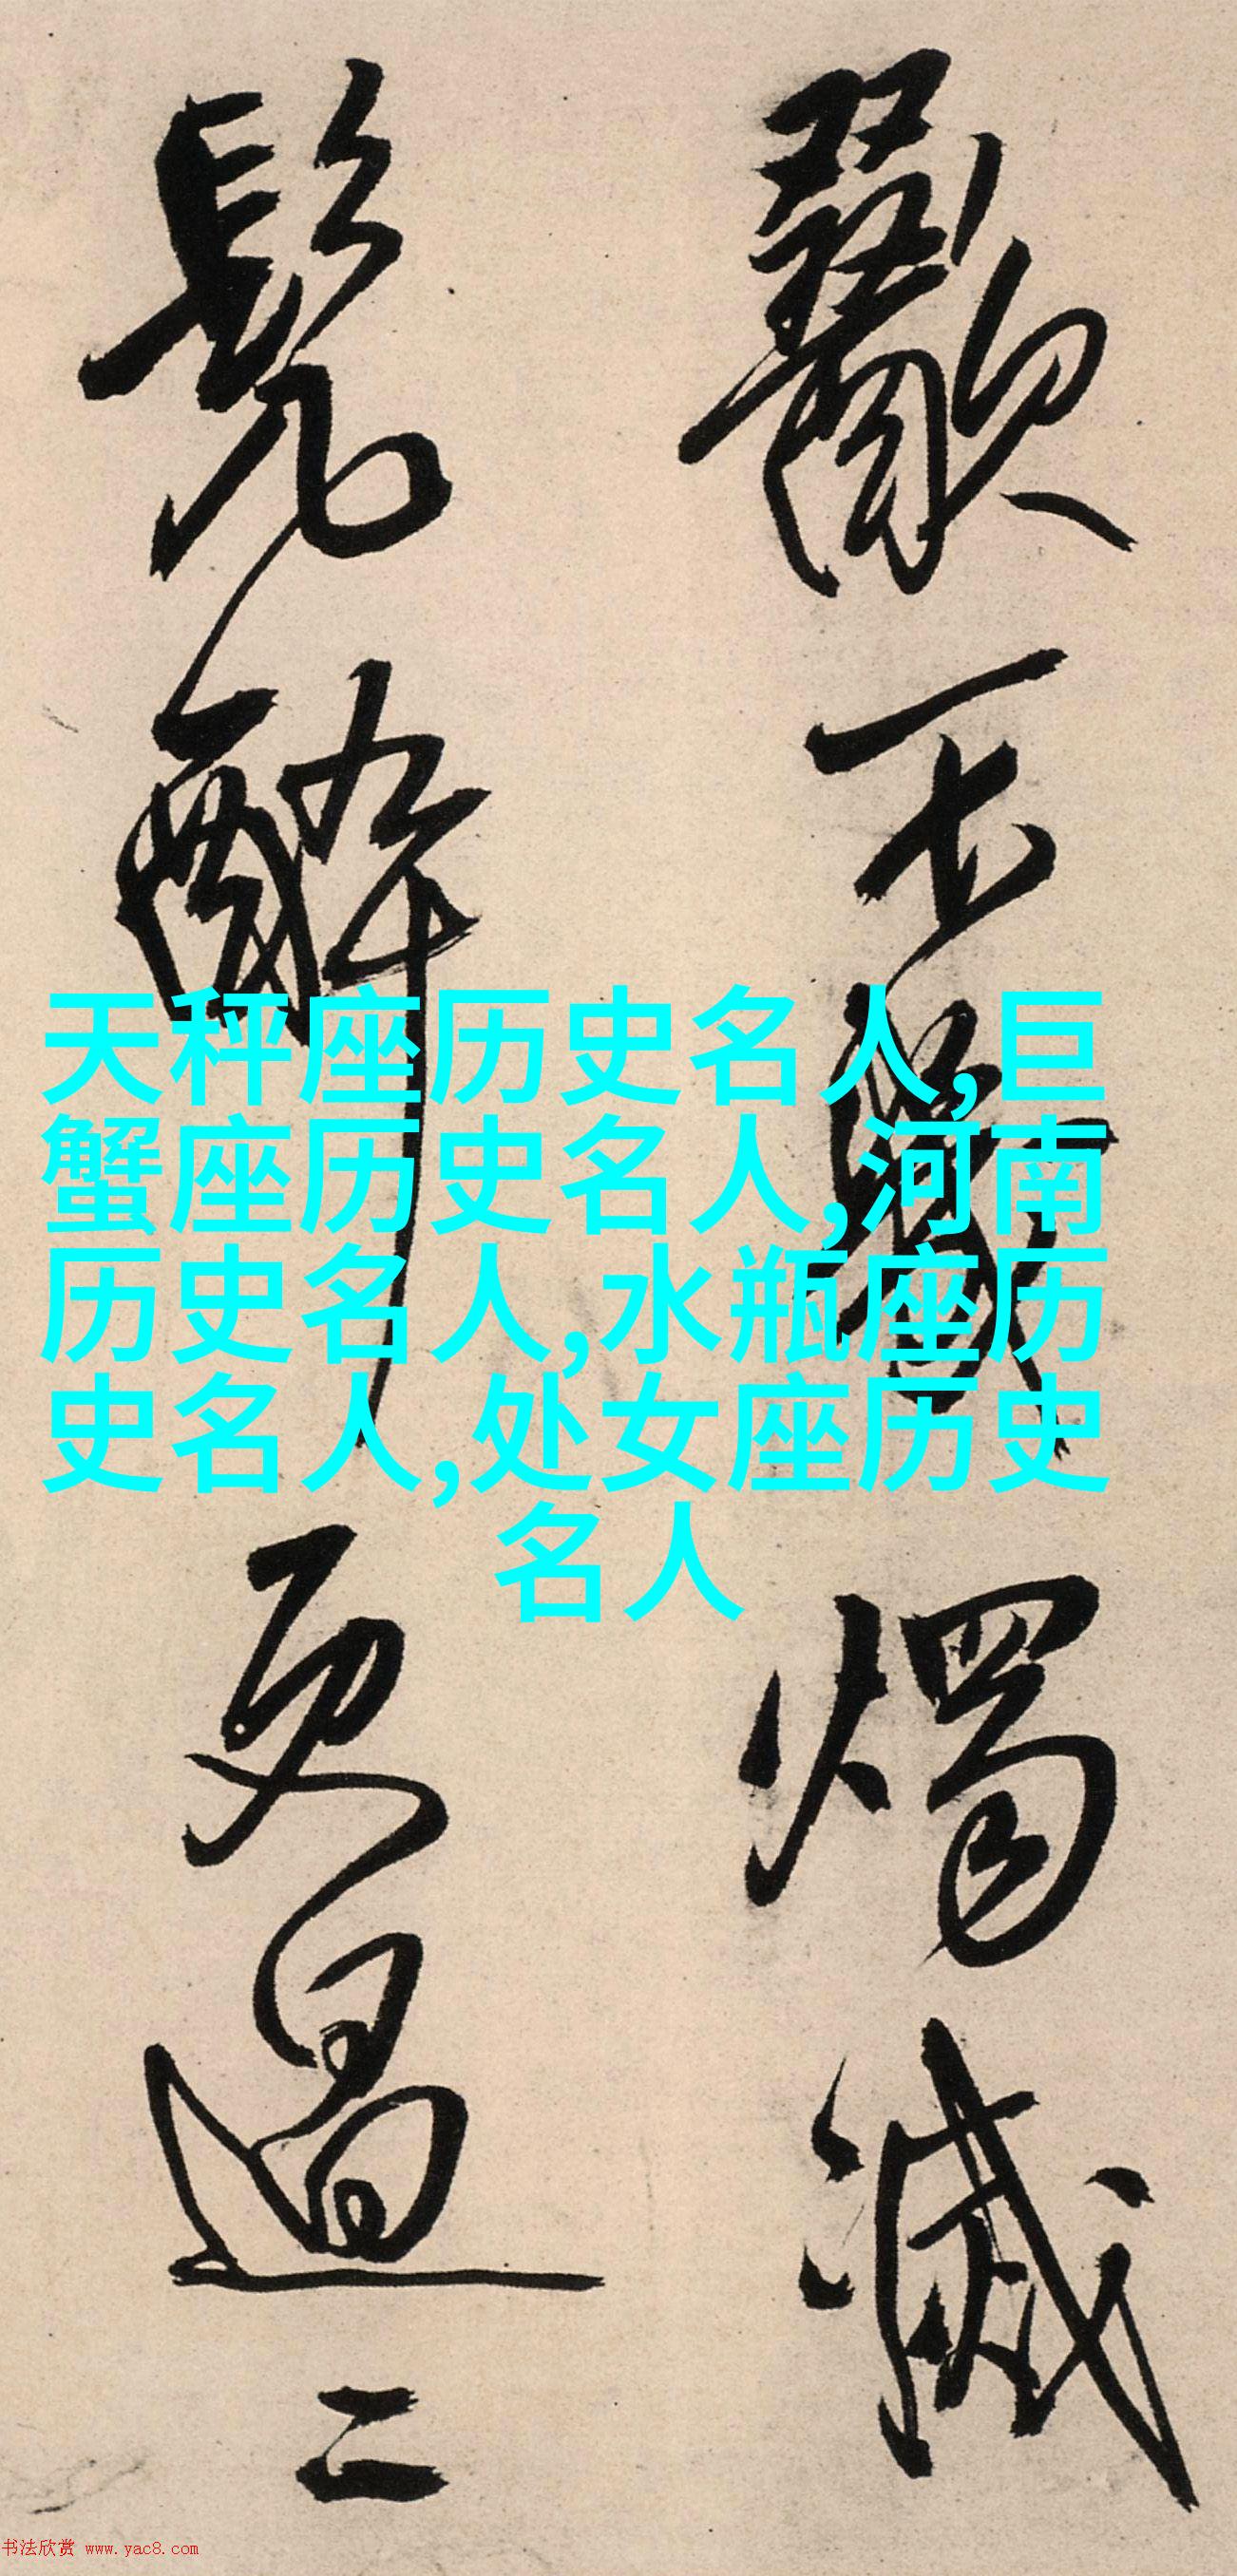 天秤座历史名人,巨
蟹座历史名人,河南
历史名人,水瓶座历
史名人,处女座历史
名人
燭滅
髡醉更過二
书法欣赏 www.yac8.com